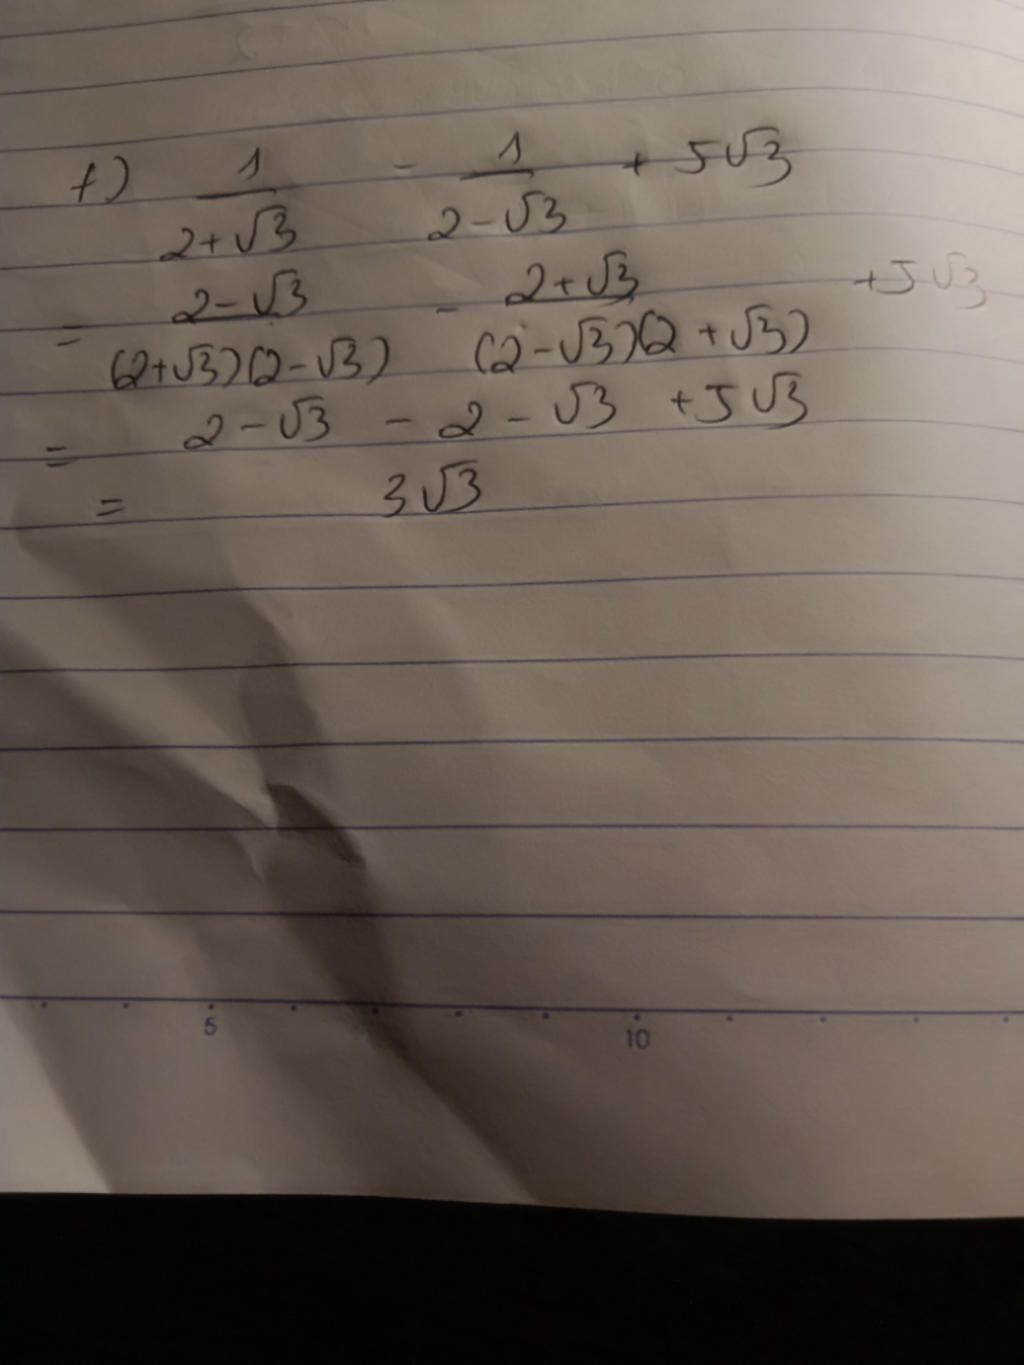 f) 1/(2+√3) - 1/(2-√3) + 5√3
= (2-√3)/((2+√3)(2-√3)) - (2+√3)/((2-√3)(2+√3)) +5√3
= 2-√3 - 2-√3 +5√3
= 3√3
5 10